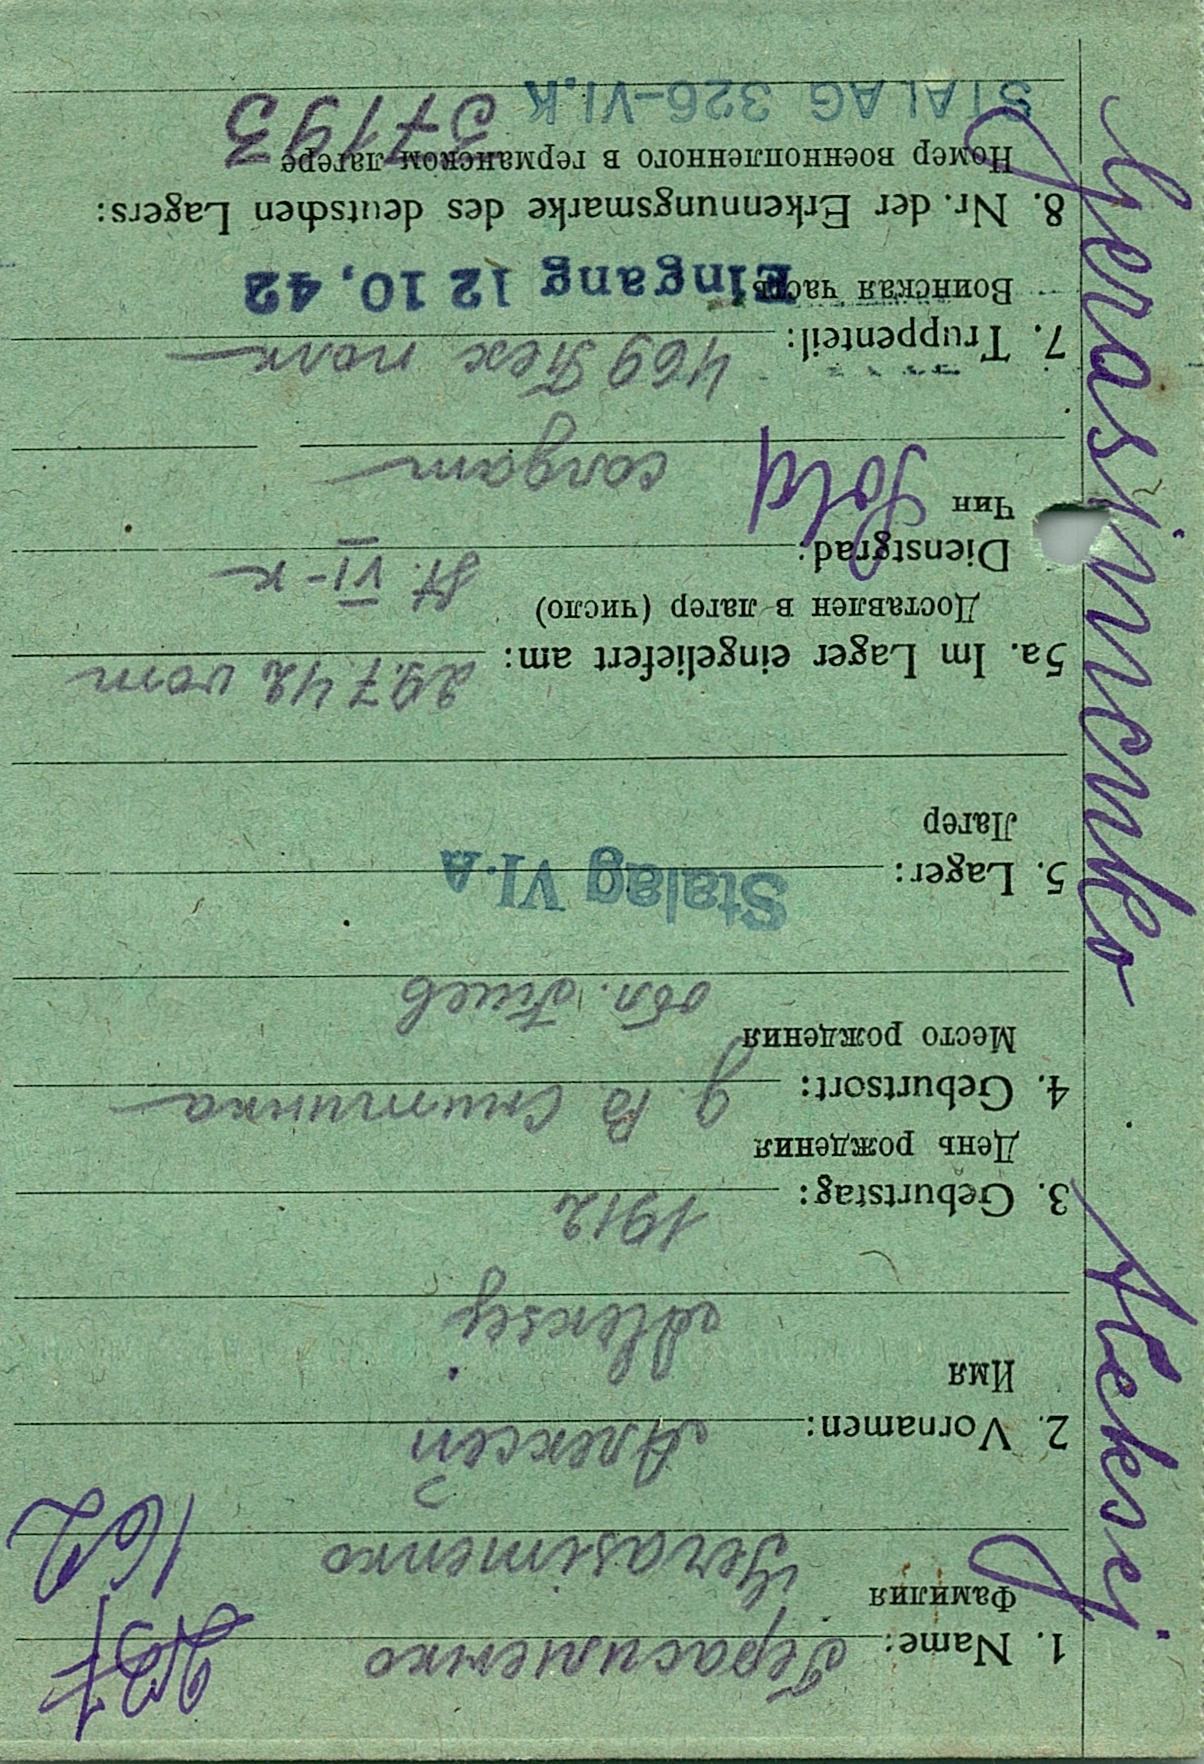 Gerasimenko Aleksej
237
162
1. Name: Герасименко
Фамилия
Gerasimenko
2. Vornamen: Алексей
Имя
Aleksej
3. Geburtstag: 1912
День рождения
4. Geburtsort: д. В Снитинка
Место рождения
обл. Киев
5. Lager: Stalag VI.A
Лагер
5a. Im Lager eingeliefert am: 29.7.42 vom
Доставлен в лагер (число)
St. VI-K
Dienstgrad: Sold
Чин
солдат
7. Truppenteil: 469 Пех полк
Воинская часть
Eingang 12 10. 42
8. Nr. der Erkennungsmarke des deutschen Lagers:
Номер военнопленного в германском лагере
STALAG 326-VI.K 37193